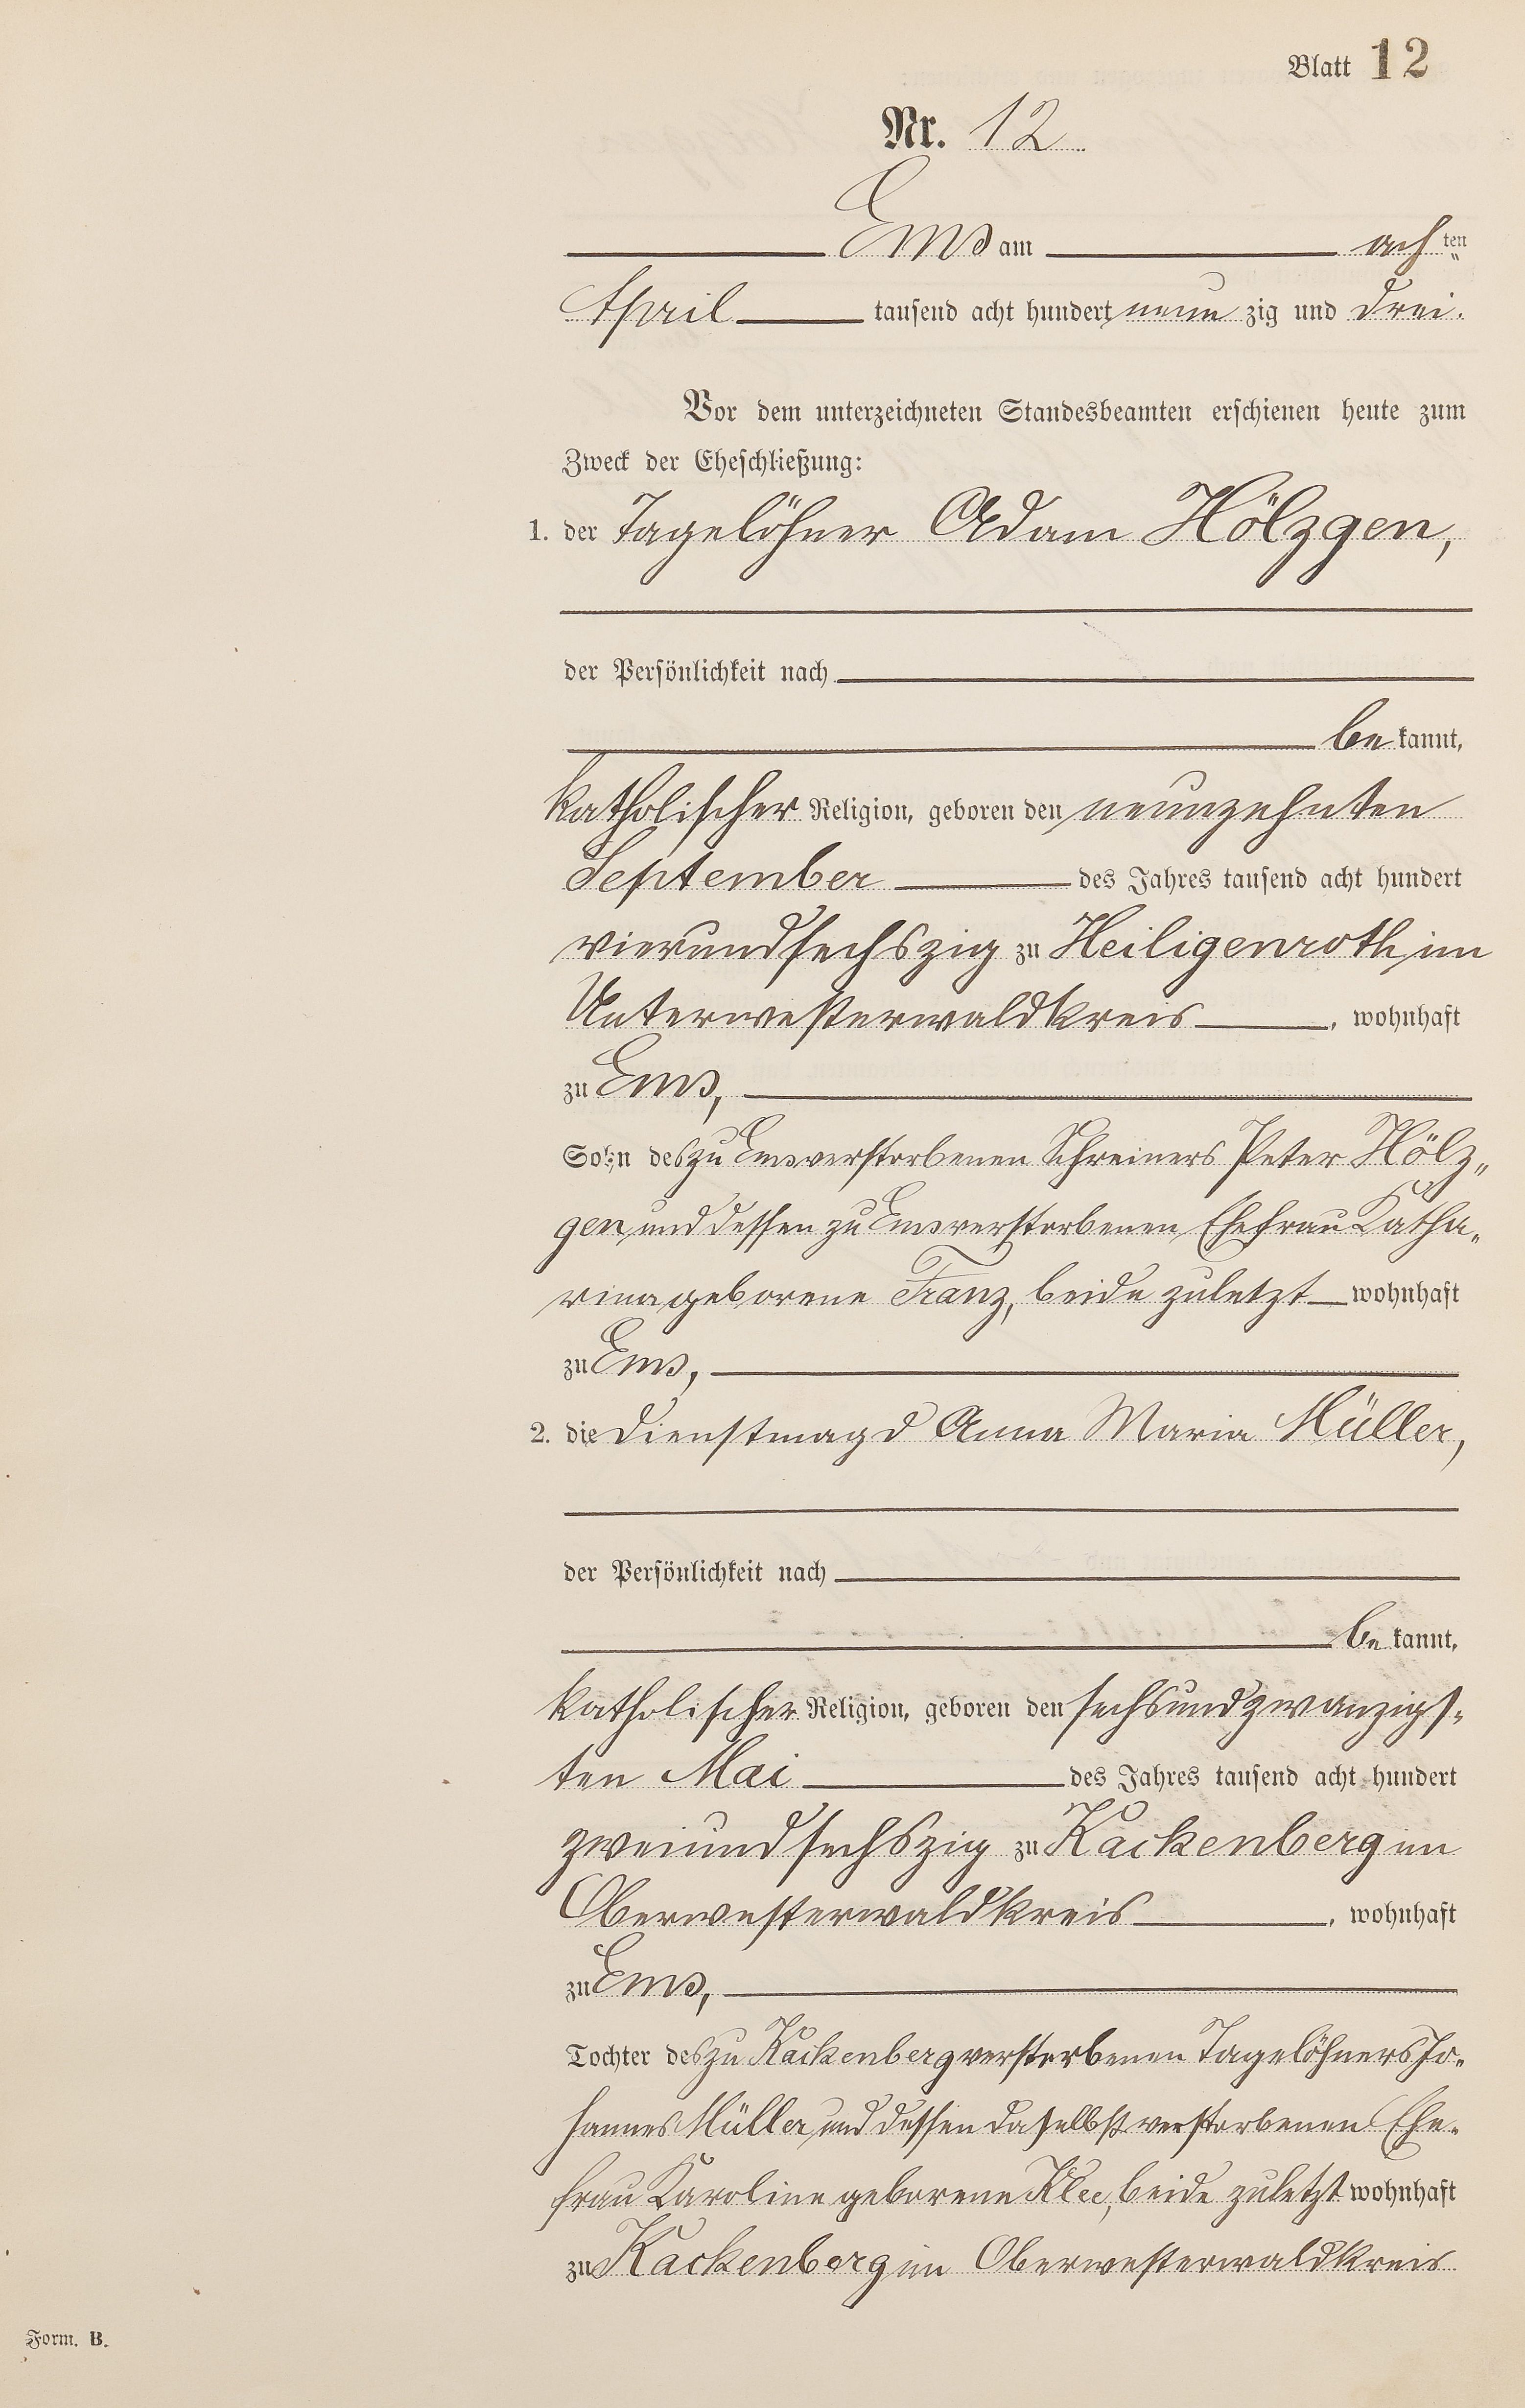 Blatt 12
Nr. 12
Ems am ach ten
April tausend acht hundert neun zig und drei.
Vor dem unterzeichneten Standesbeamten erschienen heute zum
Zweck der Eheschließung:
1. der Tagelöhner Adam Hölzgen,
der Persönlichkeit nach
be kannt,
katholischer Religion, geboren den neunzehnten
September des Jahres tausend acht hundert
vierundsechszig zu Heiligenroth im
Unterwesterwaldkreis, wohnhaft
zu Ems,
Sohn des zu Ems verstorbenen Schreiners Peter Hölz-
gen und dessen zu Ems verstorbenen Ehefrau Katha-
rina geborene Franz, beide zuletzt wohnhaft
zu Ems,
2. die Dienstmagd Anna Maria Müller,
der Persönlichkeit nach
be kannt,
katholischer Religion, geboren den sechsundzwanzigs-
ten Mai des Jahres tausend acht hundert
zweiundsechszig zu Kackenberg im
Oberwesterwaldkreis, wohnhaft
zu Ems,
Tochter des zu Kackenberg verstorbenen Tagelöhners Jo-
hannes Müller und dessen daselbst verstorbenen Ehe-
frau Karoline geborene Klee, beide zuletzt wohnhaft
zu Kackenberg im Oberwesterwaldkreis
Form. B.